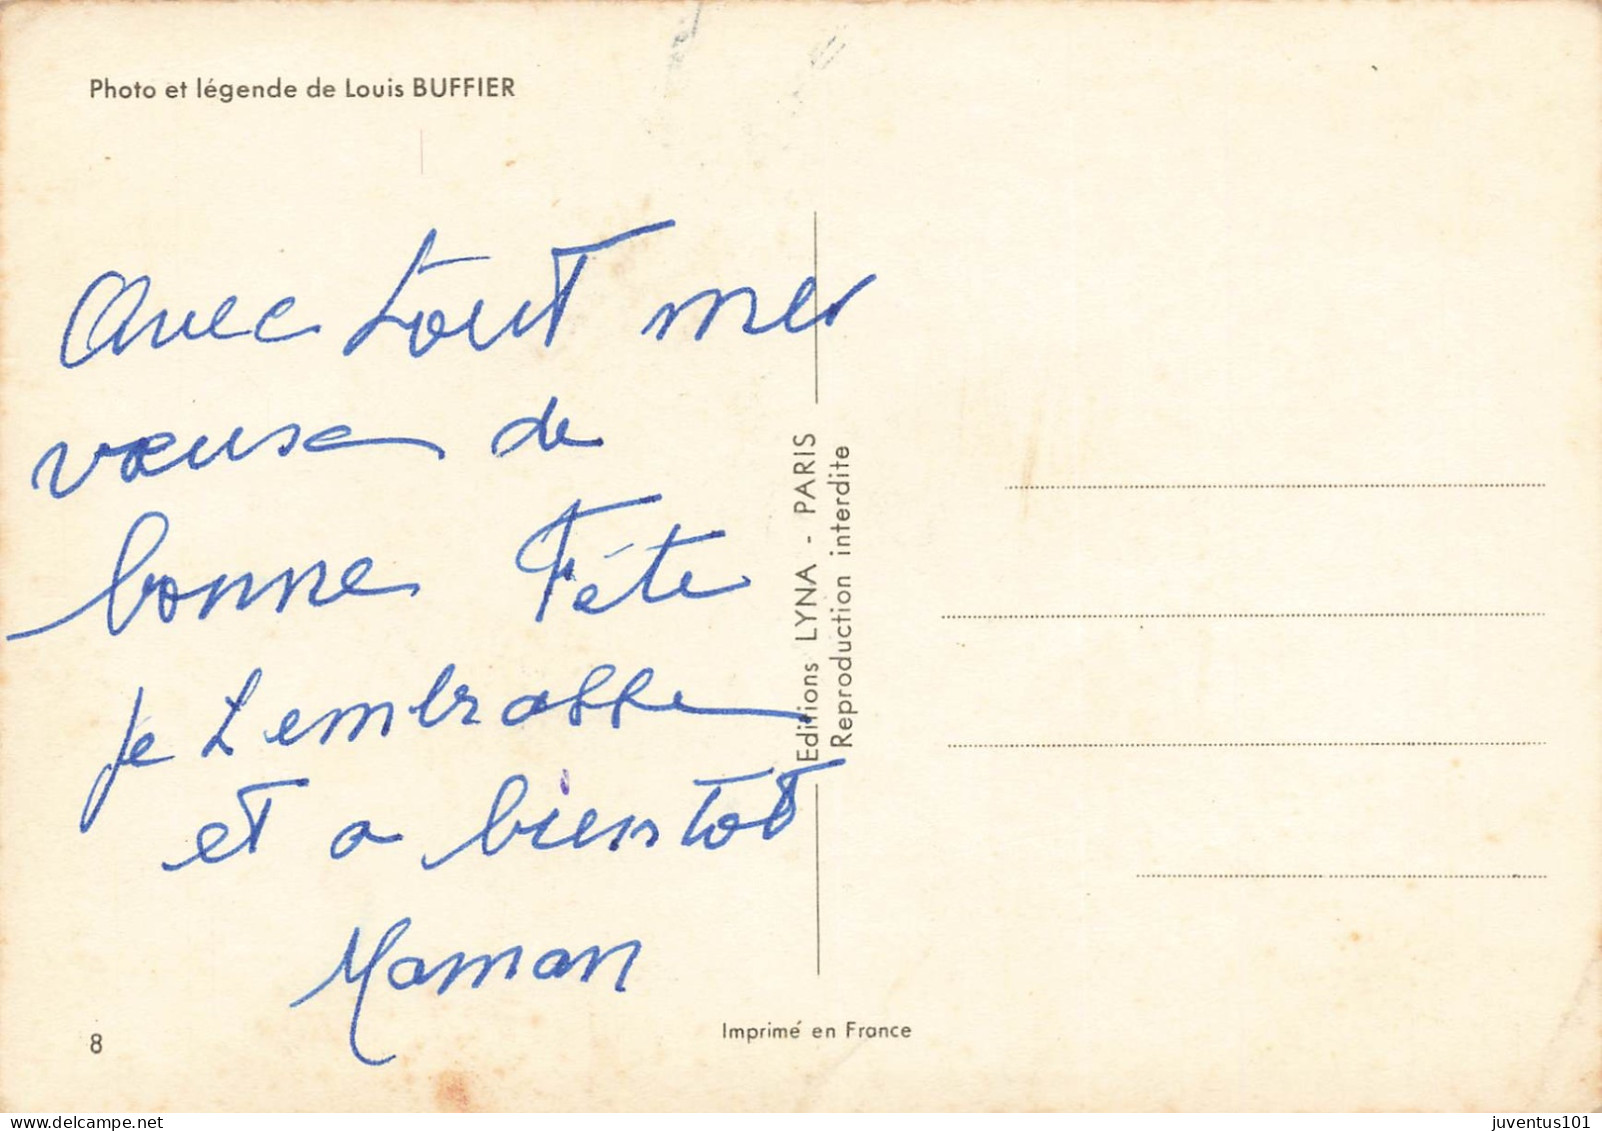 Photo et légende de Louis BUFFIER
Avec tout mes
vœuse de
bonne Fête
je t embrasse
et a bientôt
Maman
8
Editions LYNA - PARIS
Reproduction interdite
Imprimé en France
juventus101